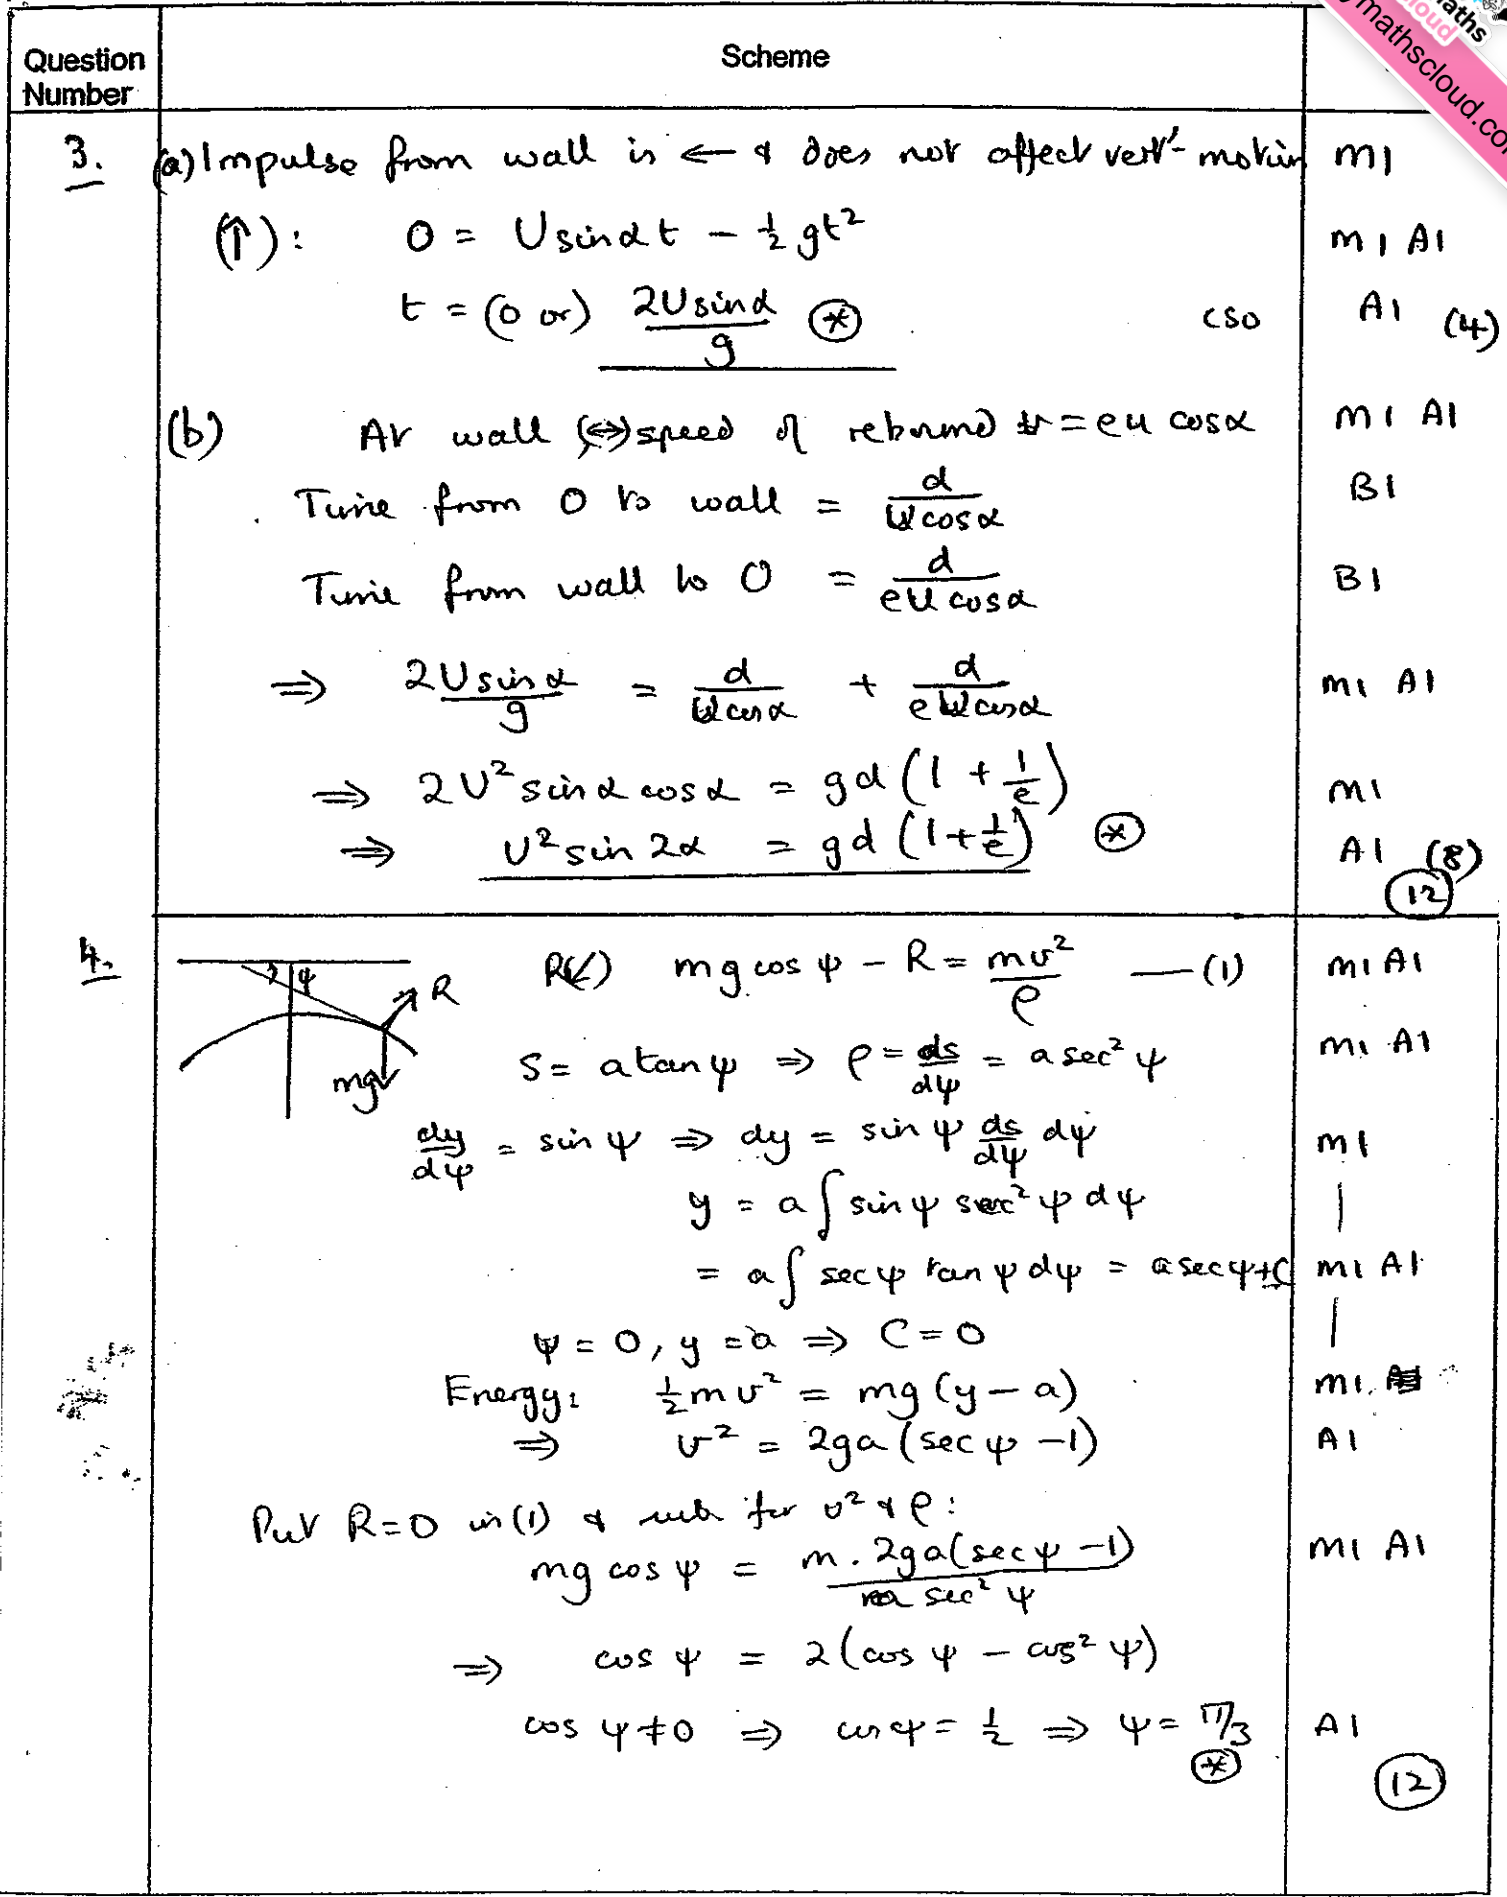 aths
cloud
mathscloud.co
Question Number
Scheme
3.
(a) Impulse from wall is ← & does not affect vert' motion M1
(↑): 0 = U sin α t - ½ gt² M1 A1
t = (0 or) 2U sin α / g ⊛ cso A1 (4)
(b) At wall (↔) speed of rebound = eu cos α M1 A1
Time from O to wall = d / U cos α B1
Time from wall to O = d / eU cos α B1
⇒ 2U sin α / g = d / U cos α + d / eU cos α M1 A1
⇒ 2U² sin α cos α = gd (1 + 1/e) M1
⇒ U² sin 2α = gd (1 + 1/e) ⊛ A1 (8)
(12)
4.
ψ
R
mg
R(↙) mg cos ψ - R = mv² / ρ — (1) M1 A1
S = a tan ψ ⇒ ρ = ds/dψ = a sec² ψ M1 A1
dy/dψ = sin ψ ⇒ dy = sin ψ ds/dψ dψ M1
y = a ∫ sin ψ sec² ψ dψ
= a ∫ sec ψ tan ψ dψ = a sec ψ + C M1 A1
ψ = 0, y = a ⇒ C = 0
Energy: ½ m v² = mg (y - a) M1
⇒ v² = 2ga (sec ψ - 1) A1
Put R = 0 in (1) & sub for v² & ρ:
mg cos ψ = m . 2ga(sec ψ - 1) / a sec² ψ M1 A1
⇒ cos ψ = 2 (cos ψ - cos² ψ)
cos ψ ≠ 0 ⇒ cos ψ = ½ ⇒ ψ = π/3 A1
⊛
(12)